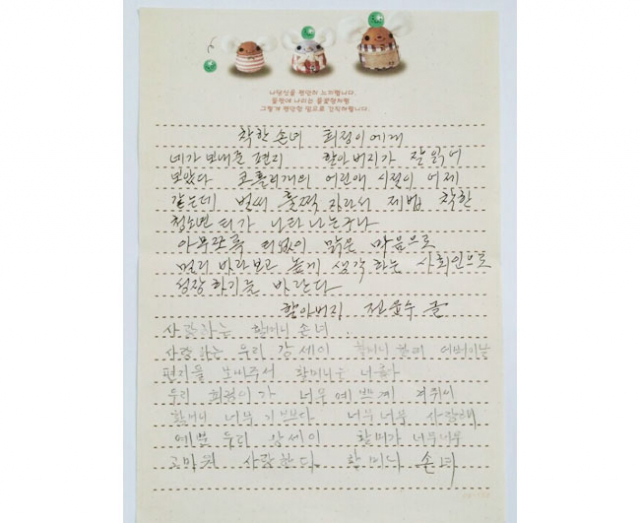 착한 손녀 희정이에게
네가 보내준 편지 할아버지가 잘 읽어
보았다 코흘리개의 어린애 시절이 어제
같은데 벌써 훌쩍 자라서 제법 착한
청소년 티가 나타나는구나
아무쪼록 티없이 맑은 마음으로
멀리 바라보고 높게 생각하는 사회인으로
성장하기를 바란다
할아버지 글
사랑하는 할머니 손녀
사랑하는 우리 강세이 할머니 어버이날
편지를 보내주서 할머니는
우리 너무 예쁘게
할머니 너무 기쁘다 너무너무 사랑해
예쁜 우리 강세이 할머가 너무너무
고마워 사랑한다. 할머니 손녀